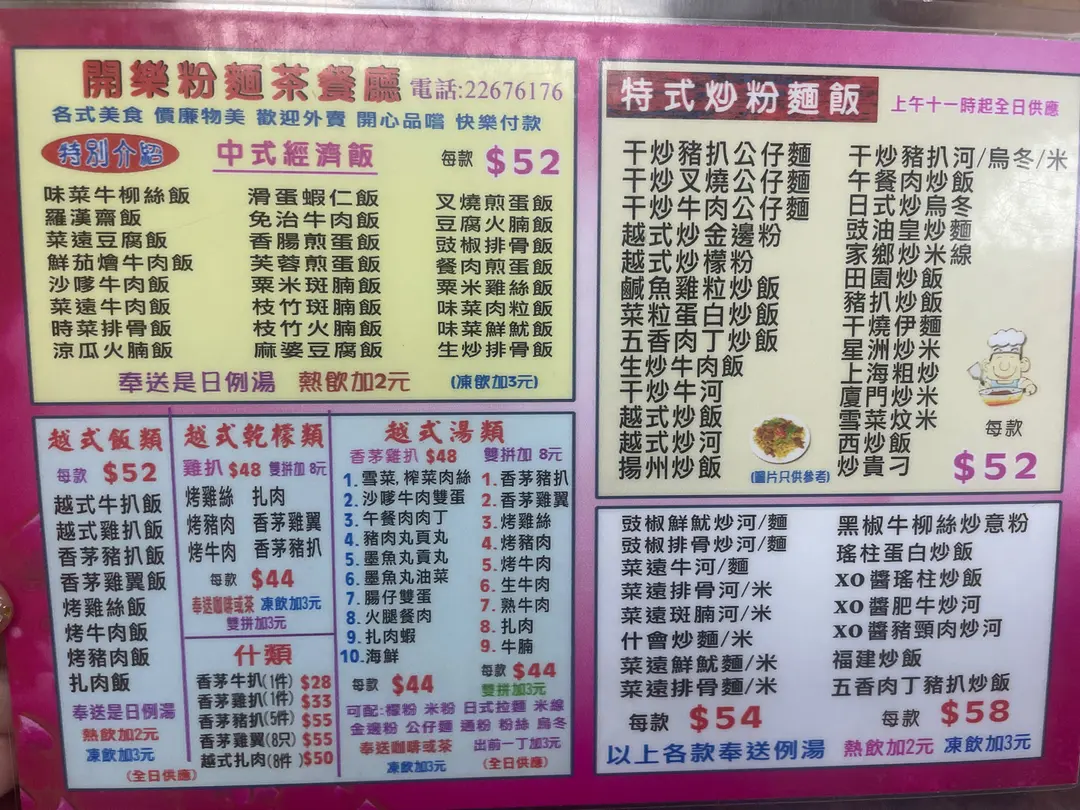 開樂粉麵茶餐廳 電話:22676176
各式美食 價廉物美 歡迎外賣 開心品嚐 快樂付款
特別介紹 中式經濟飯 每款 $52
味菜牛柳絲飯
羅漢齋飯
菜遠豆腐飯
鮮茄燴牛肉飯
沙嗲牛肉飯
菜遠牛肉飯
時菜排骨飯
涼瓜火腩飯
滑蛋蝦仁飯
免治牛肉飯
香腸煎蛋飯
芙蓉煎蛋飯
粟米斑腩飯
枝竹斑腩飯
枝竹火腩飯
麻婆豆腐飯
叉燒煎蛋飯
豆腐火腩飯
豉椒排骨飯
餐肉煎蛋飯
粟米雞絲飯
味菜肉粒飯
味菜鮮魷飯
生炒排骨飯
奉送是日例湯 熱飲加2元 (凍飲加3元)
越式飯類
每款 $52
越式牛扒飯
越式雞扒飯
香茅豬扒飯
香茅雞翼飯
烤雞絲飯
烤牛肉飯
烤豬肉飯
扎肉飯
奉送是日例湯
熱飲加2元
凍飲加3元
(全日供應)
越式乾檬類
雞扒 $48 雙拼加 8元
烤雞絲 扎肉
烤豬肉 香茅雞翼
烤牛肉 香茅豬扒
每款 $44
奉送咖啡或茶 凍飲加3元
雙拼加3元
什類
香茅牛扒(1件) $28
香茅雞扒(1件) $33
香茅豬扒(5件) $55
香茅雞翼(8只) $55
越式扎肉(8件) $50
越式湯類
香茅雞扒 $48 雙拼加 8元
1.雪菜,榨菜肉絲
2.沙嗲牛肉雙蛋
3.午餐肉肉丁
4.豬肉丸貢丸
5.墨魚丸貢丸
6.墨魚丸油菜
7.腸仔雙蛋
8.火腿餐肉
9.扎肉蝦
10.海鮮
每款 $44
1.香茅豬扒
2.香茅雞翼
3.烤雞絲
4.烤豬肉
5.烤牛肉
6.生牛肉
7.熟牛肉
8.扎肉
9.牛腩
每款 $44
雙拼加3元
可配:檬粉 米粉 日式拉麵 米線
金邊粉 公仔麵 通粉 粉絲 烏冬
奉送咖啡或茶 出前一丁加3元
凍飲加3元 (全日供應)
特式炒粉麵飯 上午十一時起全日供應
干炒豬扒公仔麵
干炒叉燒公仔麵
干炒牛肉公仔麵
越式炒金邊粉
越式炒檬粉
鹹魚雞粒炒飯
菜粒蛋白炒飯
五香肉丁炒飯
生炒牛肉飯
干炒牛河
越式炒飯
越式炒河
揚州炒飯
(圖片只供參考)
干炒豬扒河/烏冬/米
午餐肉炒飯
日式炒烏冬
豉油皇炒麵
家鄉炒米線
田園炒飯
豬扒炒飯
干燒伊麵
星洲炒米
上海粗炒
廈門炒米
雪菜炆米
西炒飯
炒貴刁
每款
$52
豉椒鮮魷炒河/麵
豉椒排骨炒河/麵
菜遠牛河/麵
菜遠排骨河/米
菜遠斑腩河/米
什會炒麵/米
菜遠鮮魷麵/米
菜遠排骨麵/米
每款 $54
黑椒牛柳絲炒意粉
瑤柱蛋白炒飯
XO醬瑤柱炒飯
XO醬肥牛炒河
XO醬豬頸肉炒河
福建炒飯
五香肉丁豬扒炒飯
每款 $58
以上各款奉送例湯 熱飲加2元 凍飲加3元